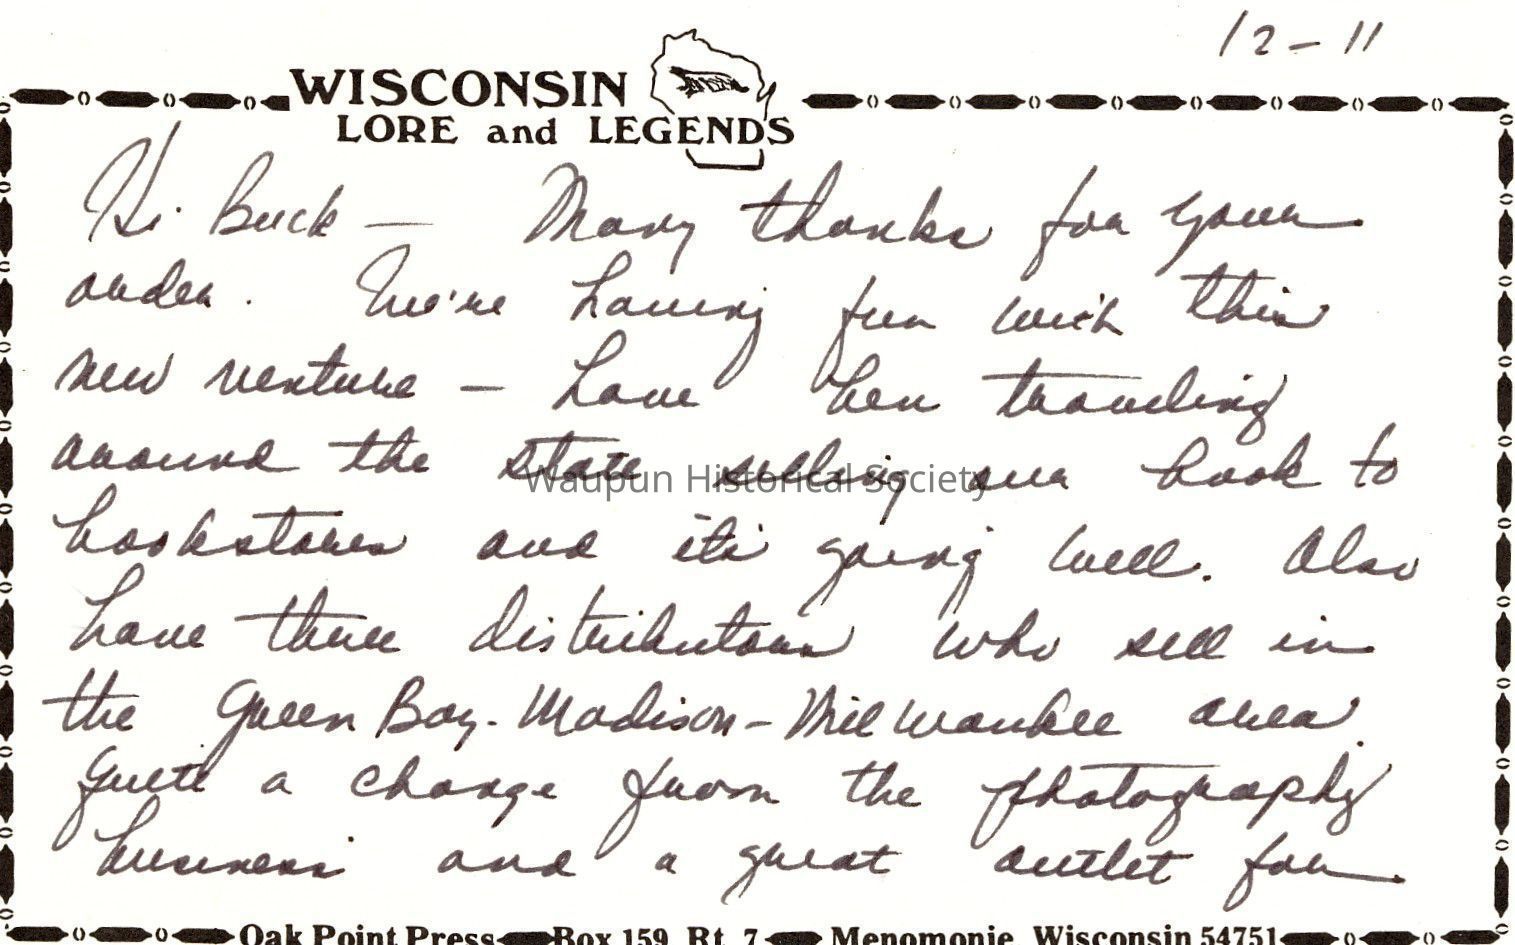 12-11
WISCONSIN
LORE and LEGENDS
Hi Buck — Many thanks for your
order. We're having fun with this
new venture — have been traveling
around the state selling our book to
bookstores and it's going well. Also
have three distributors who sell in
the Green Bay-Madison-Milwaukee area.
Quite a change from the photography
business and a great outlet for
Waupun Historical Society
Oak Point Press Box 159 Rt. 7 Menomonie Wisconsin 54751